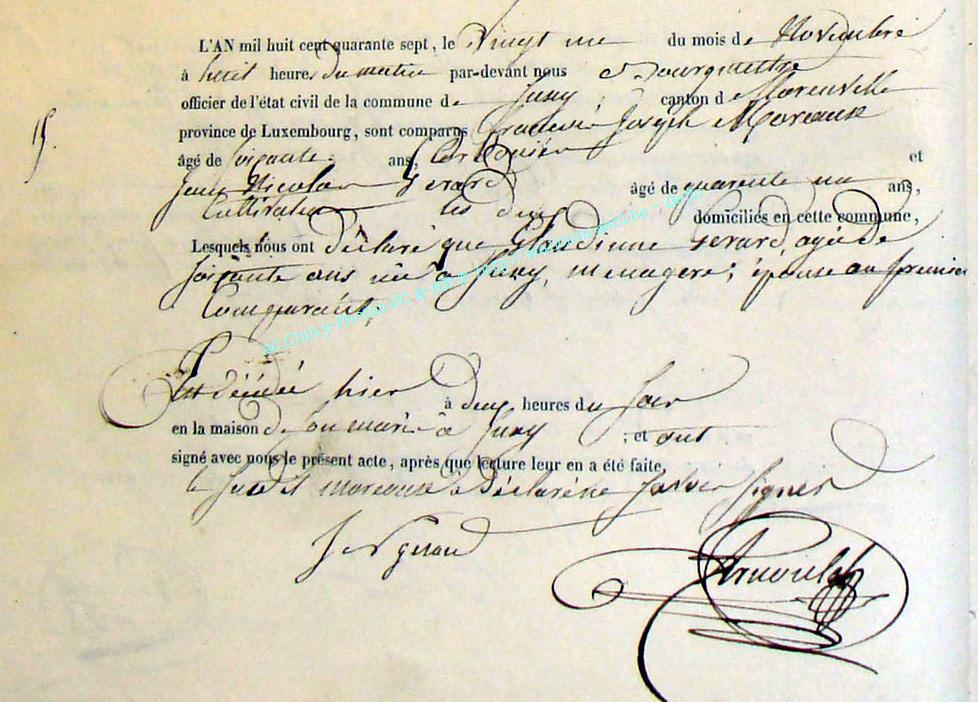 L'AN mil huit cent quarante sept, le Vingt une du mois de Novembre
à huit heures du matin par-devant nous Bourgmestre
officier de l'état civil de la commune de Juzy, canton de
province de Luxembourg, sont comparus Joseph Moreaux
15.
âgé de soixante ans, Cordonier et
Jean Nicolas Gerard âgé de quarente un ans,
Cultivateur les deux domiciliés en cette commune,
Lesquels nous ont déclaré que Glaudinne Gerard agée de
soixante ans née à Juzy, menagere, épouse au premier
Comparant,
Est décédée hier à deux heures du soir
en la maison de son marie à Juzy ; et ont
signé avec nous le présent acte, après que lecture leur en a été faite,
le susdit moreaux a déclaré ne savoir signer
J N Gerard
Arnould